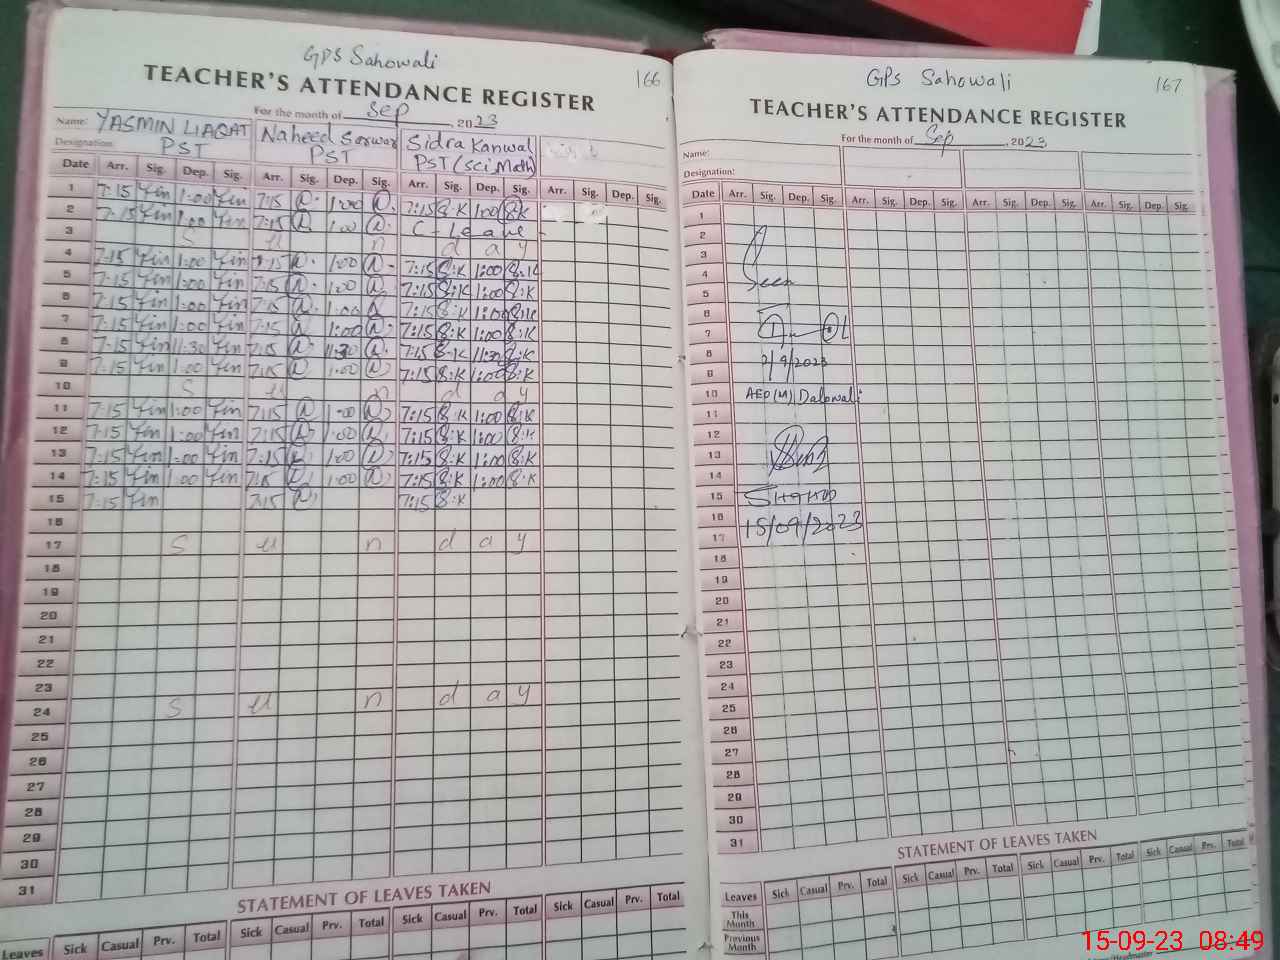 GPS Sahowali
166
TEACHER'S ATTENDANCE REGISTER
For the month of Sep, 2023
Name: YASMIN LIAQAT Naheed Sarwar Sidra Kanwal
Designation: PST PST PST (sci, Math)
Date Arr. Sig. Dep. Sig. Arr. Sig. Dep. Sig. Arr. Sig. Dep. Sig. Arr. Sig. Dep. Sig.
1 7:15 Yin 1:00 Yin 7:15 N. 1:00 N. 7:15 S.K 1:00 S.K
2 7:15 Yin 1:00 Yin 7:15 N. 1:00 N. C-Leave -
3 S u n d a y
4 7:15 Yin 1:00 Yin 7:15 N. 1:00 N. 7:15 S.K 1:00 S.K
5 7:15 Yin 1:00 Yin 7:15 N. 1:00 N. 7:15 S.K 1:00 S.K
6 7:15 Yin 1:00 Yin 7:15 N. 1:00 N. 7:15 S.K 1:00 S.K
7 7:15 Yin 1:00 Yin 7:15 N. 1:00 N. 7:15 S.K 1:00 S.K
8 7:15 Yin 11:30 Yin 7:15 N. 11:30 N. 7:15 S.K 11:30 S.K
9 7:15 Yin 1:00 Yin 7:15 N. 1:00 N. 7:15 S.K 1:00 S.K
10 S u n d a y
11 7:15 Yin 1:00 Yin 7:15 N. 1:00 N. 7:15 S.K 1:00 S.K
12 7:15 Yin 1:00 Yin 7:15 N. 1:00 N. 7:15 S.K 1:00 S.K
13 7:15 Yin 1:00 Yin 7:15 N. 1:00 N. 7:15 S.K 1:00 S.K
14 7:15 Yin 1:00 Yin 7:15 N. 1:00 N. 7:15 S.K 1:00 S.K
15 7:15 Yin 7:15 N. 7:15 S.K
16
17 S u n d a y
18
19
20
21
22
23
24 S u n d a y
25
26
27
28
29
30
31
STATEMENT OF LEAVES TAKEN
Leaves Sick Casual Prv. Total Sick Casual Prv. Total Sick Casual Prv. Total Sick Casual Prv. Total
GPS Sahowali
167
TEACHER'S ATTENDANCE REGISTER
For the month of Sep, 2023
Name:
Designation:
Date Arr. Sig. Dep. Sig. Arr. Sig. Dep. Sig. Arr. Sig. Dep. Sig. Arr. Sig. Dep. Sig.
1
2
3
4 Seen
5
6
7
8 7/9/2023
9
10 AEO (M) Dalowali
11
12
13
14
15
16 15/09/2023
17
18
19
20
21
22
23
24
25
26
27
28
29
30
31
STATEMENT OF LEAVES TAKEN
Leaves Sick Casual Prv. Total Sick Casual Prv. Total Sick Casual Prv. Total Sick Casual Prv. Total
This Month
Previous Month
15-09-23 08:49